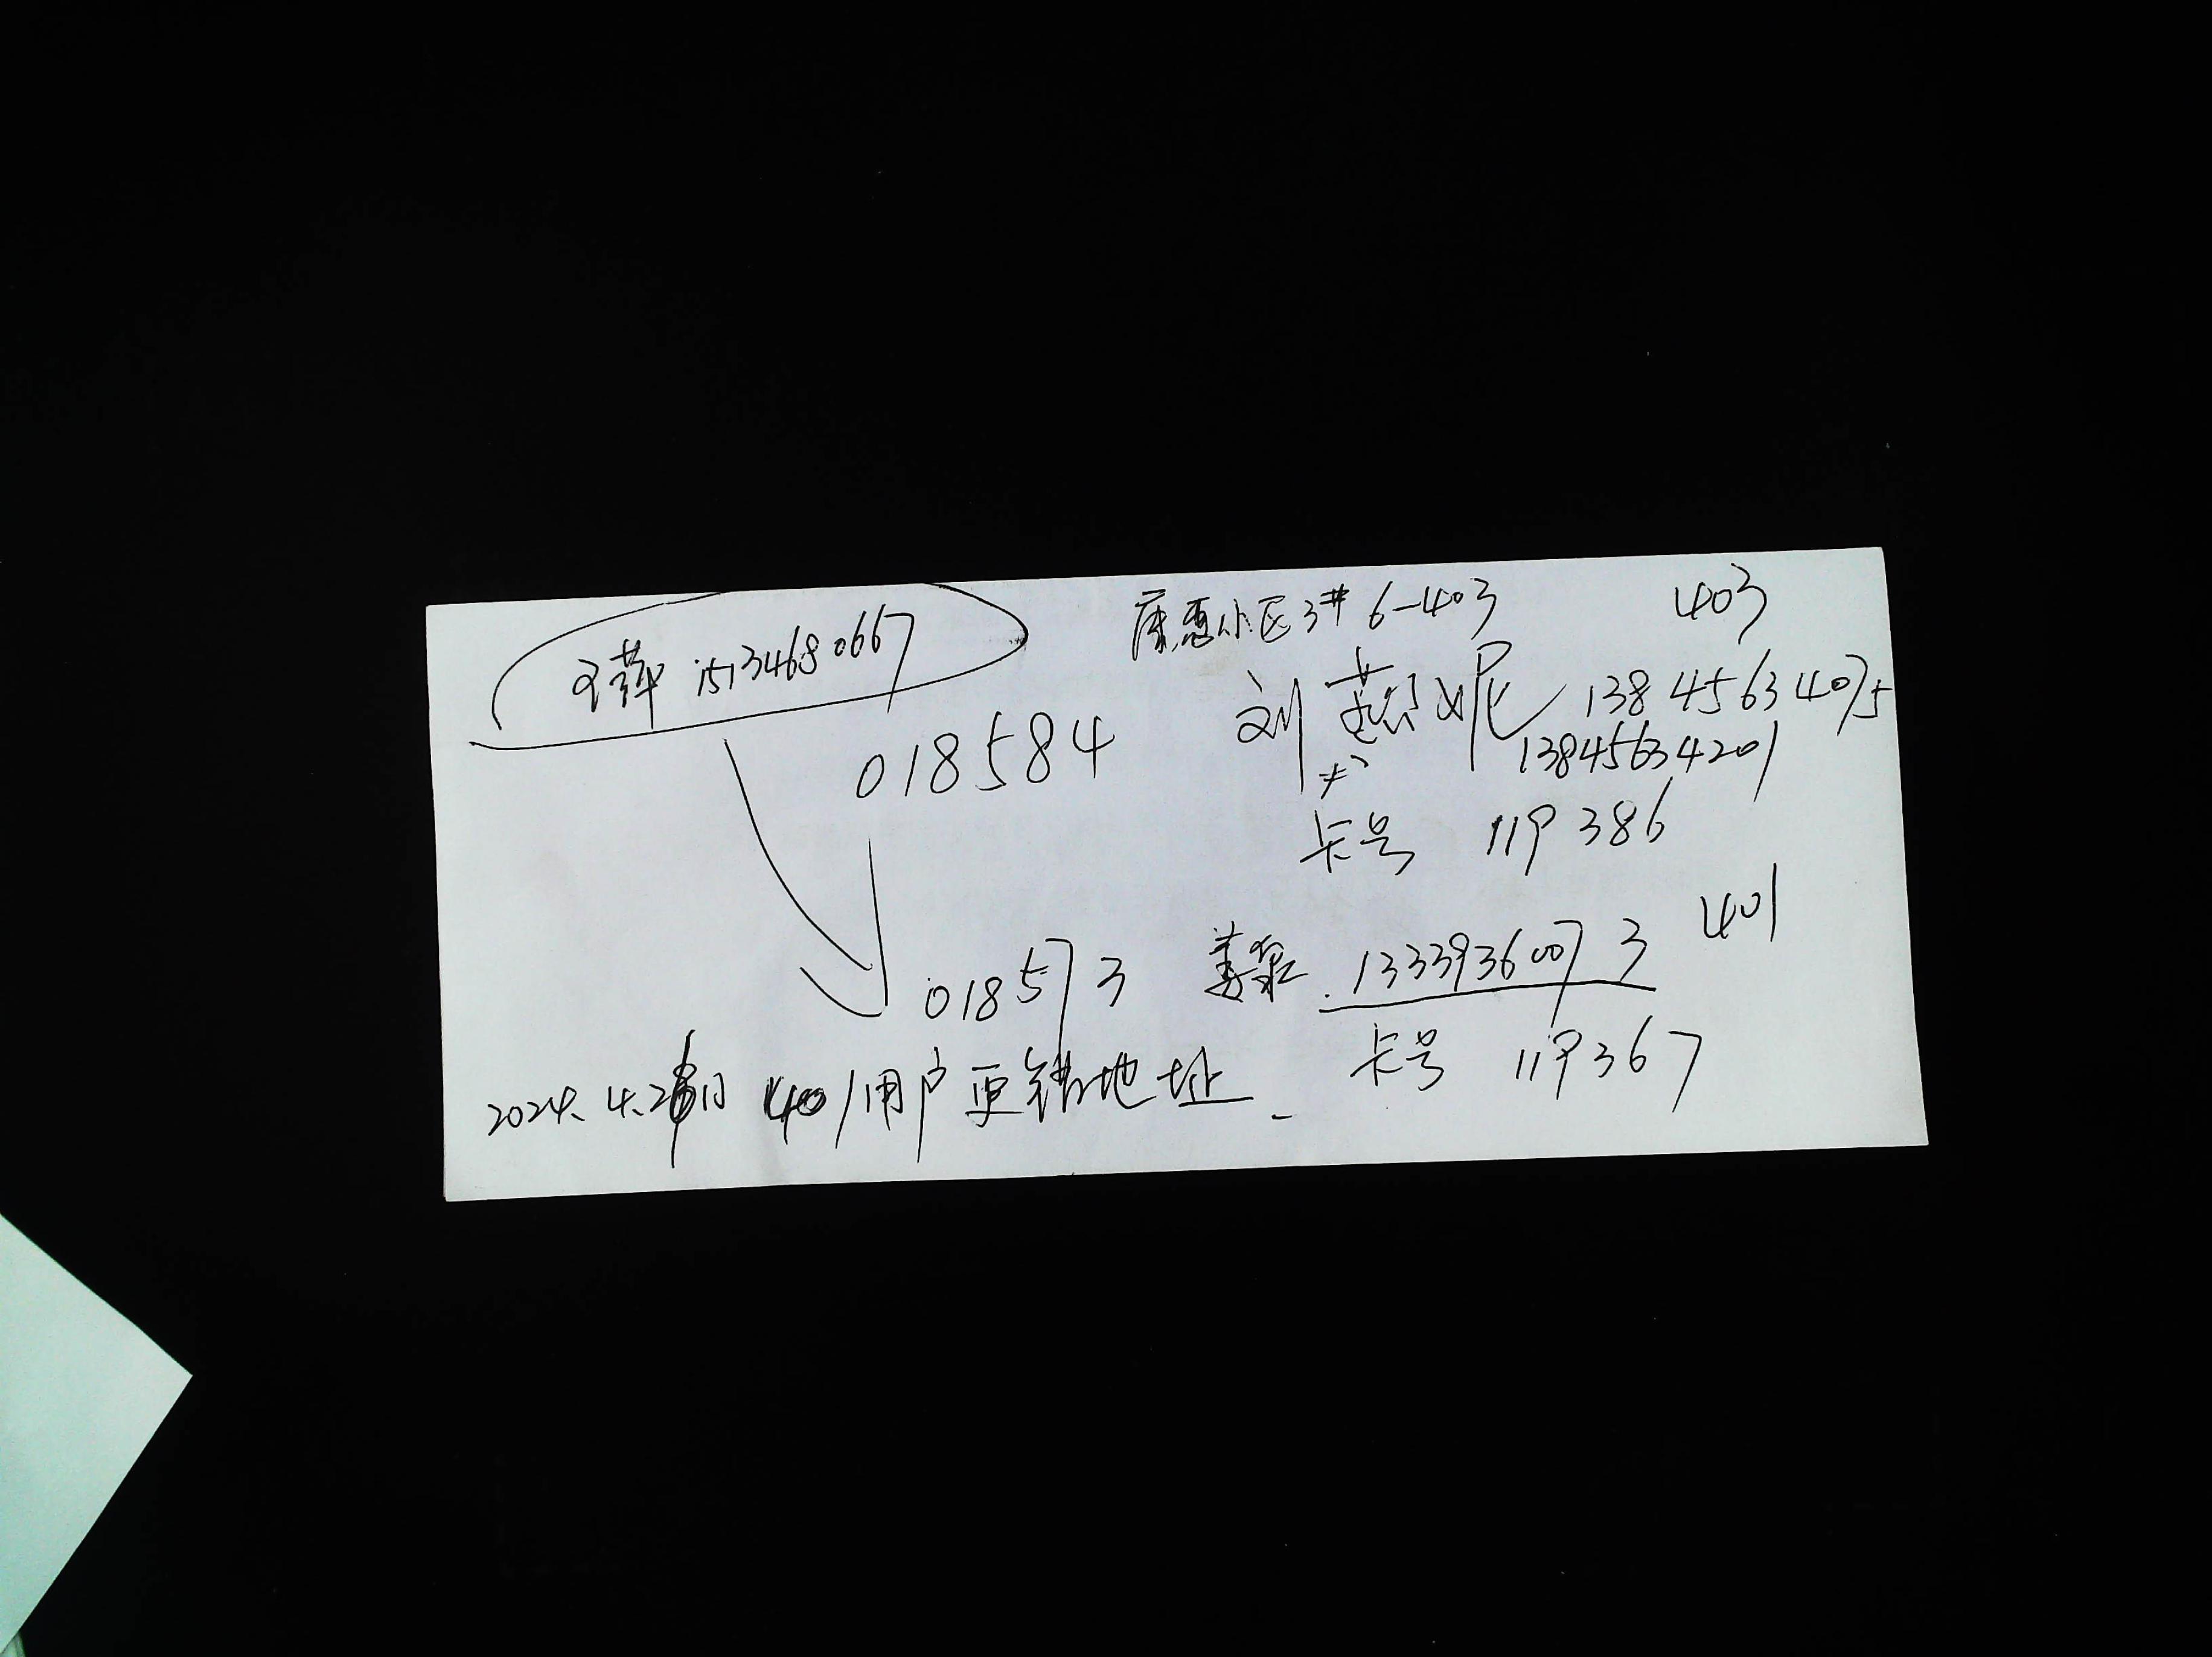 康惠小区3# 6-403
403
王萍 15134680667
刘燕妮 13845634075
13845634201
018584
卡号 119386
401
018573 姜泉 13339360073
卡号 119367
2024.4.28日 401用户更错地址